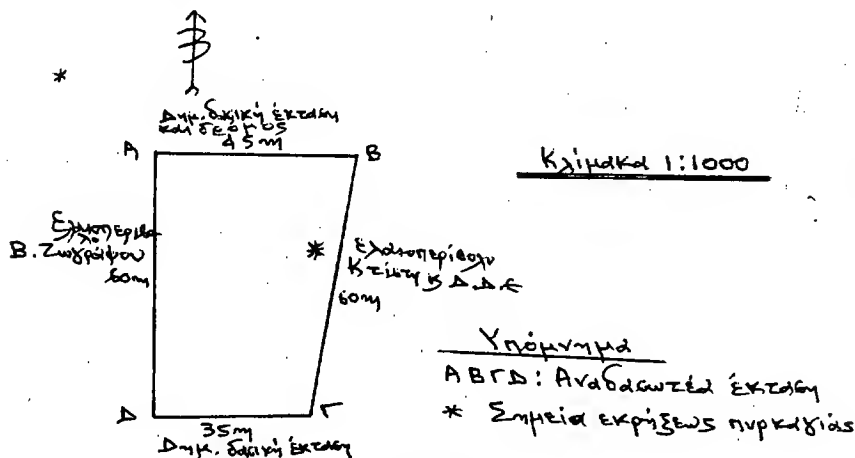 Β
*
Δημ. δασική έκταση
και δρόμος
45m
Α
Β
Κλίμακα 1:1000
Ελαιοπερίβο
λο
Β. Ζωγράφου
60m
*
Ελαιοπερίβολο
Κτίστη κ Δ.Δ.Ε
60m
Υπόμνημα
ΑΒΓΔ: Αναδασωτέα έκταση
* Σημεία εκρήξεως πυρκαγιάς
Δ
35m
Γ
Δημ. δασική έκταση